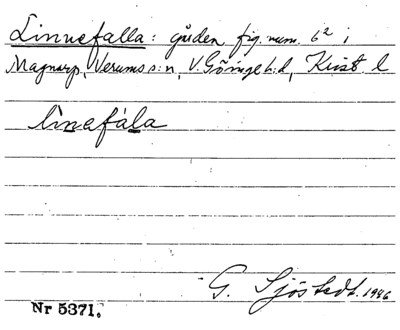 Linnefalla: gården fig. num. 6² i
Magnarp, Verums s:n, V. Göinge h:d, Krist l
linefála
G. Sjöstedt. 1946
Nr 5371.